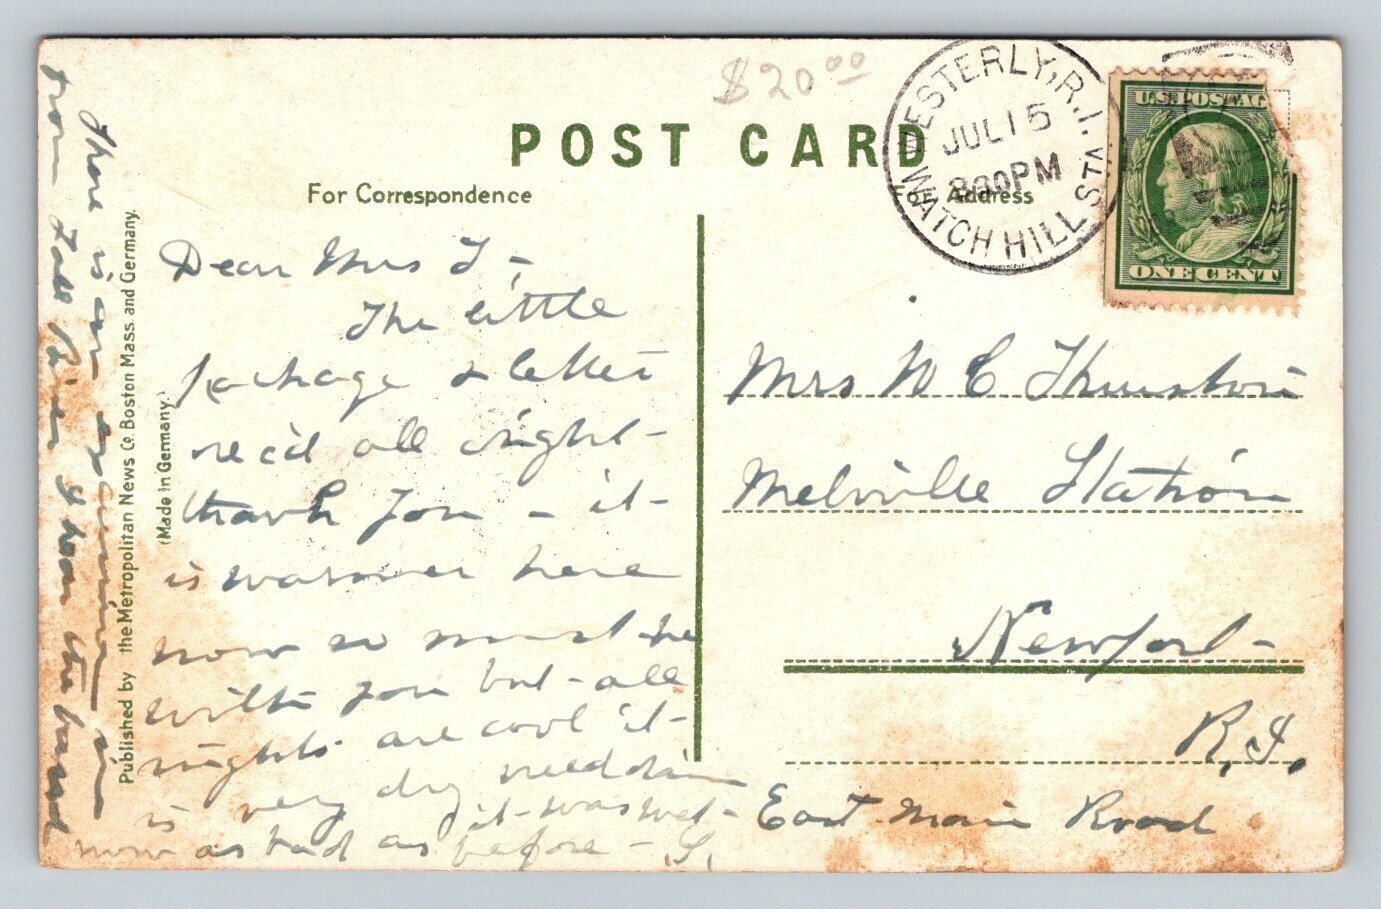 $20.00
POST CARD
For Correspondence
For Address
WESTERLY, R.I.
JUL 15
830PM
WATCH HILL STA.
U.S. POSTAG
ONE CENT
Dear Mrs T -
The little
package & letter
rec'd all right -
thank you - it
is warmer here
now so must be
with you but - all
nights are cool it -
is very dry need rain
now as bad as it - was wet -
before - S.
There is an excursion in
from Fall River I hear the band
Published by the Metropolitan News Co. Boston Mass. and Germany.
(Made in Germany.)
Mrs W C Thurston
Melville Station
Newport -
R.I.
East Main Road